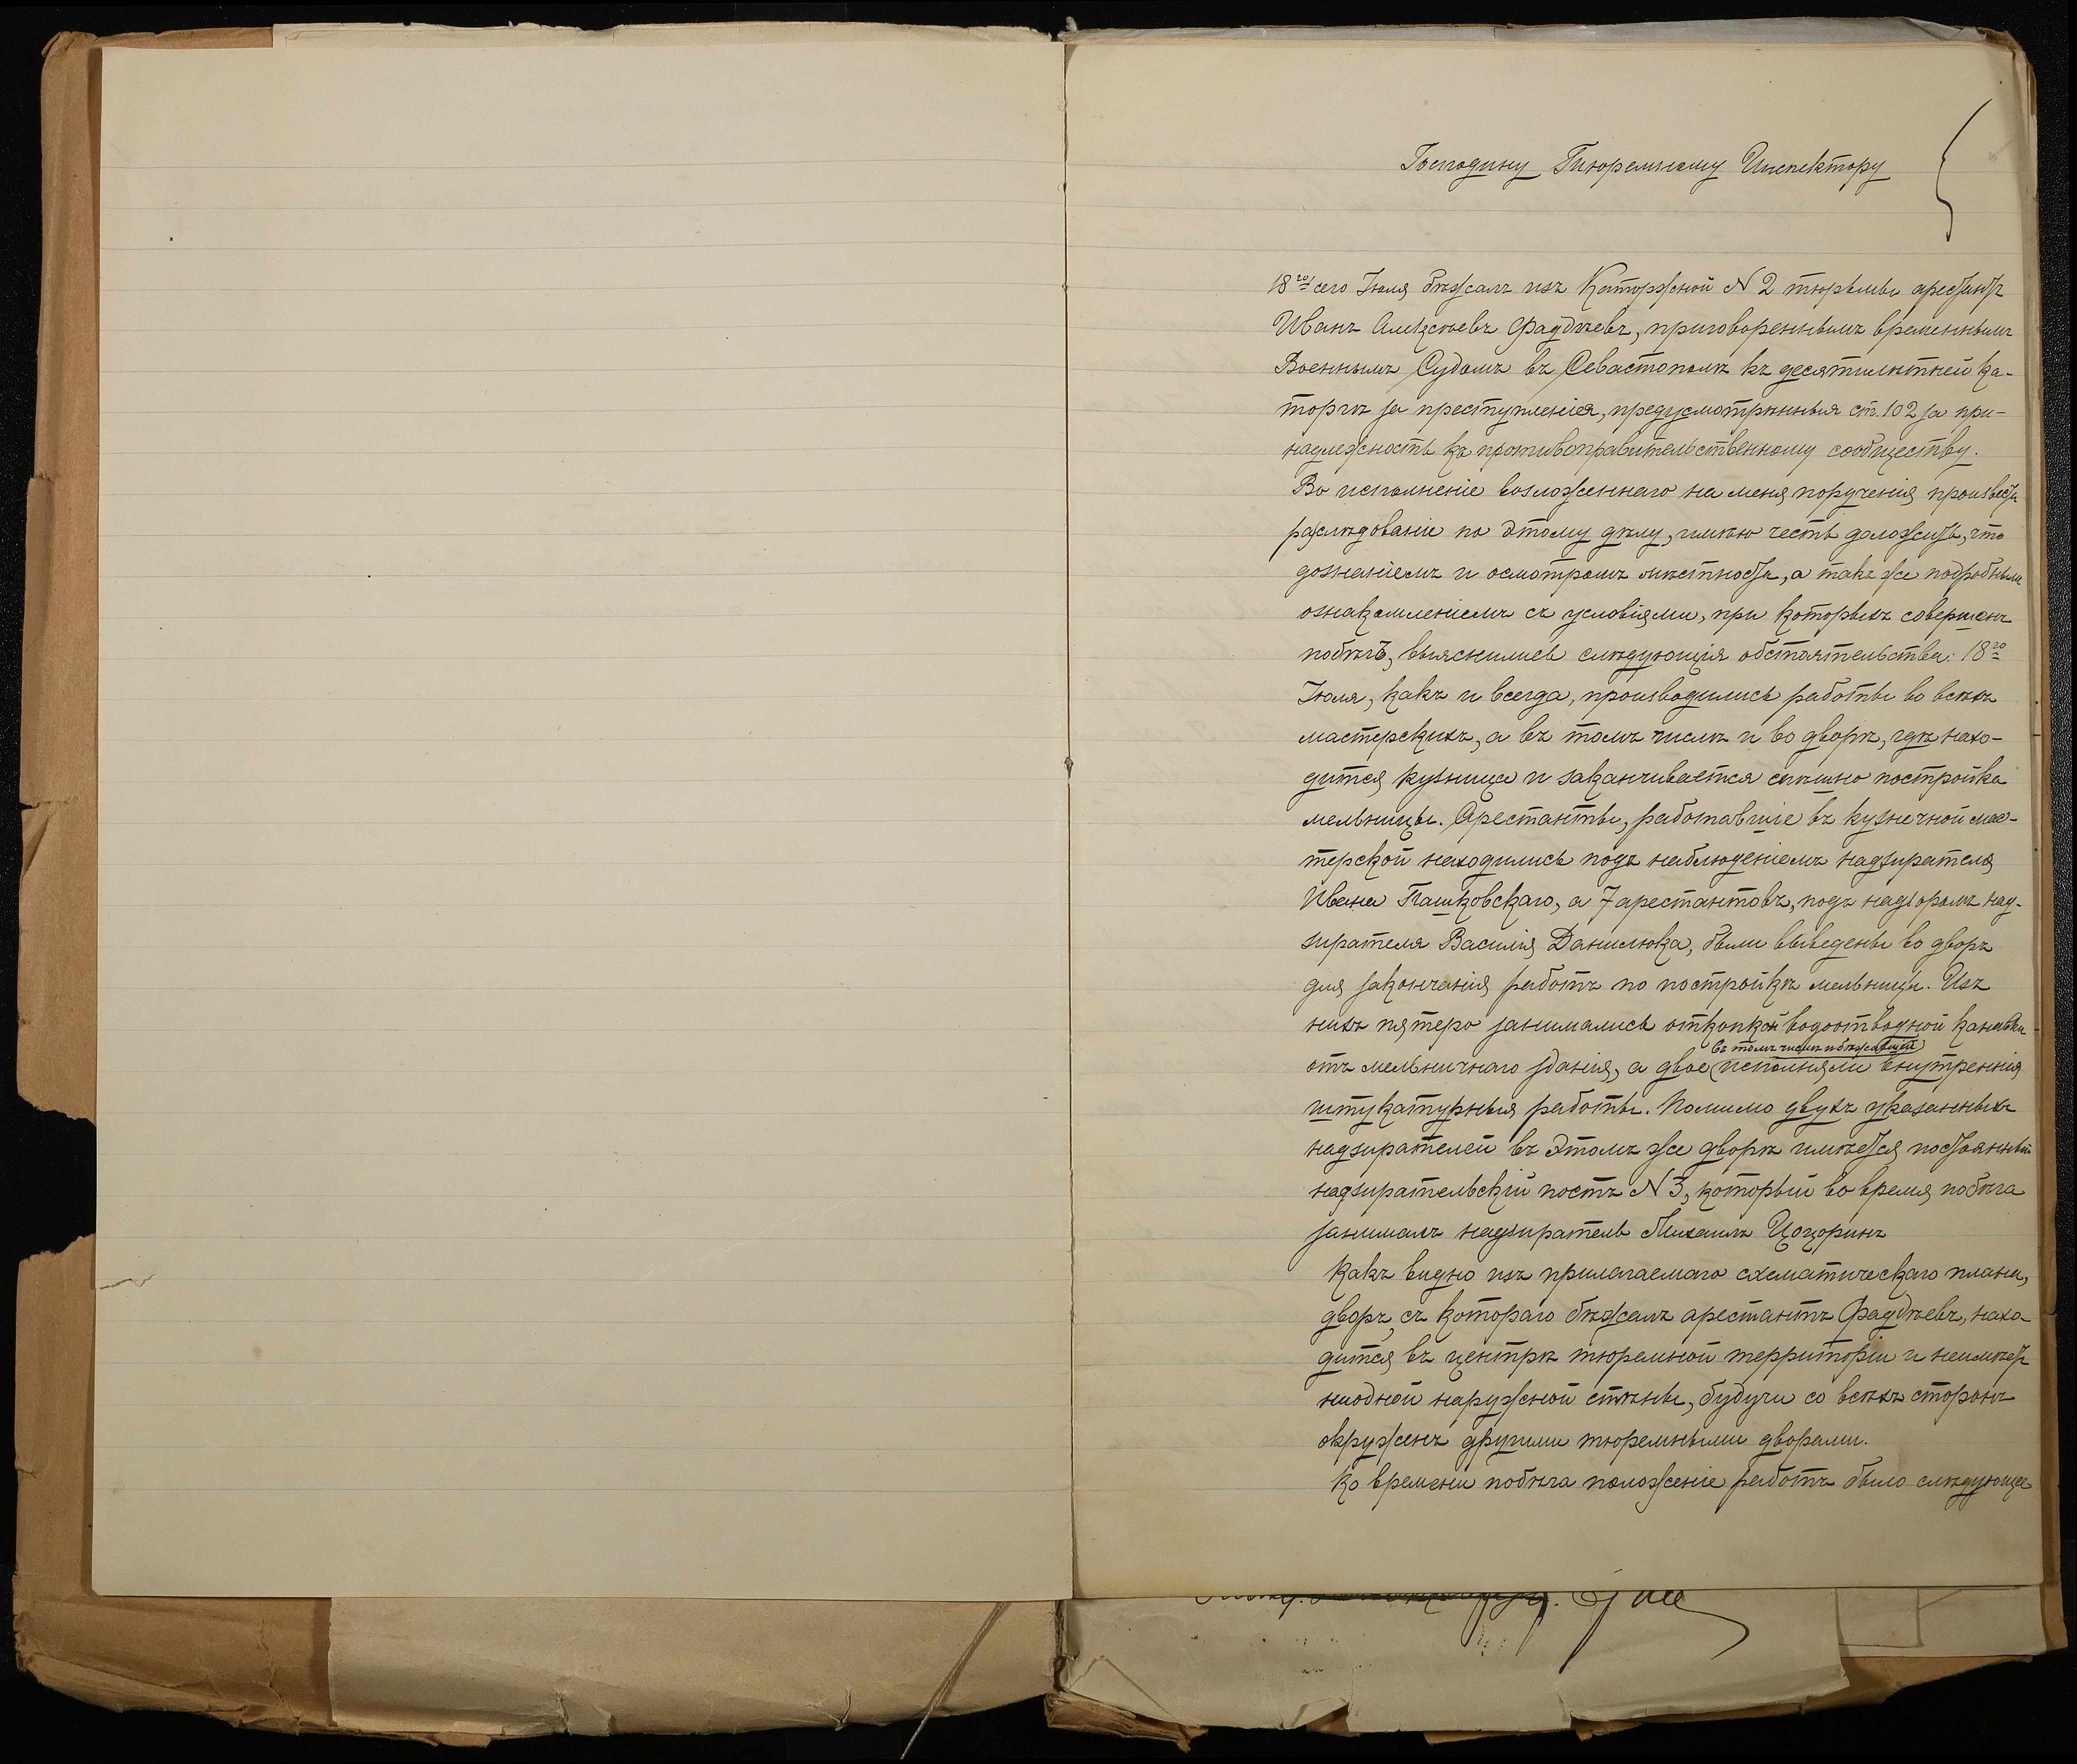 Господину Тюремному Инспектору
18го сего Іюля бѣжалъ изъ Каторжной N 2 тюрьмы арестантъ
Иванъ Алексѣевъ Фадѣевъ, приговоренныхъ временнымъ
Военнымъ Судомъ въ Севастополѣ къ десятилѣтней ка-
торгѣ за преступленія, предусмотрѣнныя ст. 102 за при-
надлежность къ противоправительственному сообществу.
Во исполненіе возложеннаго на меня порученія произвести
разслѣдованіе по этому дѣлу, имѣю честь доложить, что
дознаніемъ и осмотромъ мѣстности, а такъ же подробнымъ
ознакомленіемъ съ условіями, при которыхъ совершенъ
побѣгъ, выяснились слѣдующія обстоятельства: 18го
Іюля, какъ и всегда, производились работы во всѣхъ
мастерскихъ, а въ томъ числѣ и во дворѣ, гдѣ нахо-
дится кузница и заканчивается спѣшно постройка
мельницы. Арестанты, работавшіе въ кузнечной мас-
терской находились подъ наблюденіемъ надзирателя
Ивана Пашковскаго, а 7 арестантовъ, подъ надзоромъ над-
зирателя Василія Данилюка, были выведены во дворъ
для закончанія работъ по постройкѣ мельницы. Изъ
нихъ пятеро занимались откопкой водоотводной канавки
въ томъ числѣ и бѣжавшій
отъ мельничнаго зданія, а двое исполняли внутреннія
штукатурныя работы. Помимо двухъ указанныхъ
надзирателей въ этомъ же дворѣ имѣется постоянный
надзирательскій постъ N 3, который во время побѣга
занималъ надзиратель Михаилъ Цоцоринъ
Какъ видно изъ прилагаемаго схематическаго плана,
дворъ, съ котораго бѣжалъ арестантъ Фадѣевъ, нахо-
дится въ центрѣ тюремной территоріи и не имѣетъ
ни одной наружной стѣны, будучи со всѣхъ сторонъ
окруженъ другими тюремными дворами.
Ко времени побѣга положеніе работъ было слѣдующее